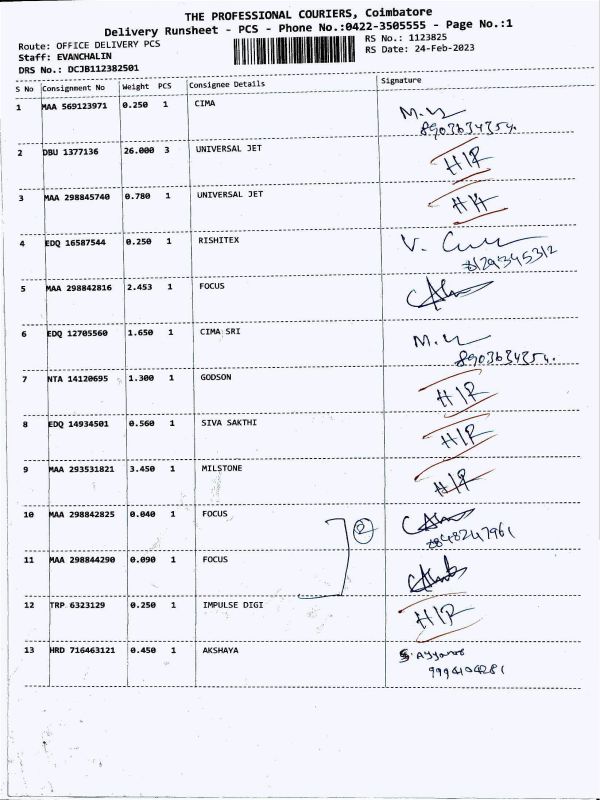 THE PROFESSIONAL COURIERS, Coimbatore
Delivery Runsheet - PCS - Phone No.:0422-3505555 - Page No.:1
Route: OFFICE DELIVERY PCS
RS No.: 1123825
Staff: EVANCHALIN
RS Date: 24-Feb-2023
DRS No.: DCJB112382501
S No Consignment No Weight PCS Consignee Details Signature
1 MAA 569123971 0.250 1 CIMA
8903634354.
2 DBU 1377136 26.000 3 UNIVERSAL JET H/R
3 MAA 298845740 0.780 1 UNIVERSAL JET
4 EDQ 16587544 0.250 1 RISHITEX
5 MAA 298842816 2.453 1 FOCUS
6 EDQ 12705560 1.650 1 CIMA SRI
8903634354.
7 NTA 14120695 1.300 1 GODSON H/R
8 EDQ 14934501 0.560 1 SIVA SAKTHI H/R
9 MAA 293531821 3.450 1 MILSTONE H/R
10 MAA 298842825 0.040 1 FOCUS
2
11 MAA 298844290 0.090 1 FOCUS
12 TRP 6323129 0.250 1 IMPULSE DIGI H/R
13 HRD 716463121 0.450 1 AKSHAYA